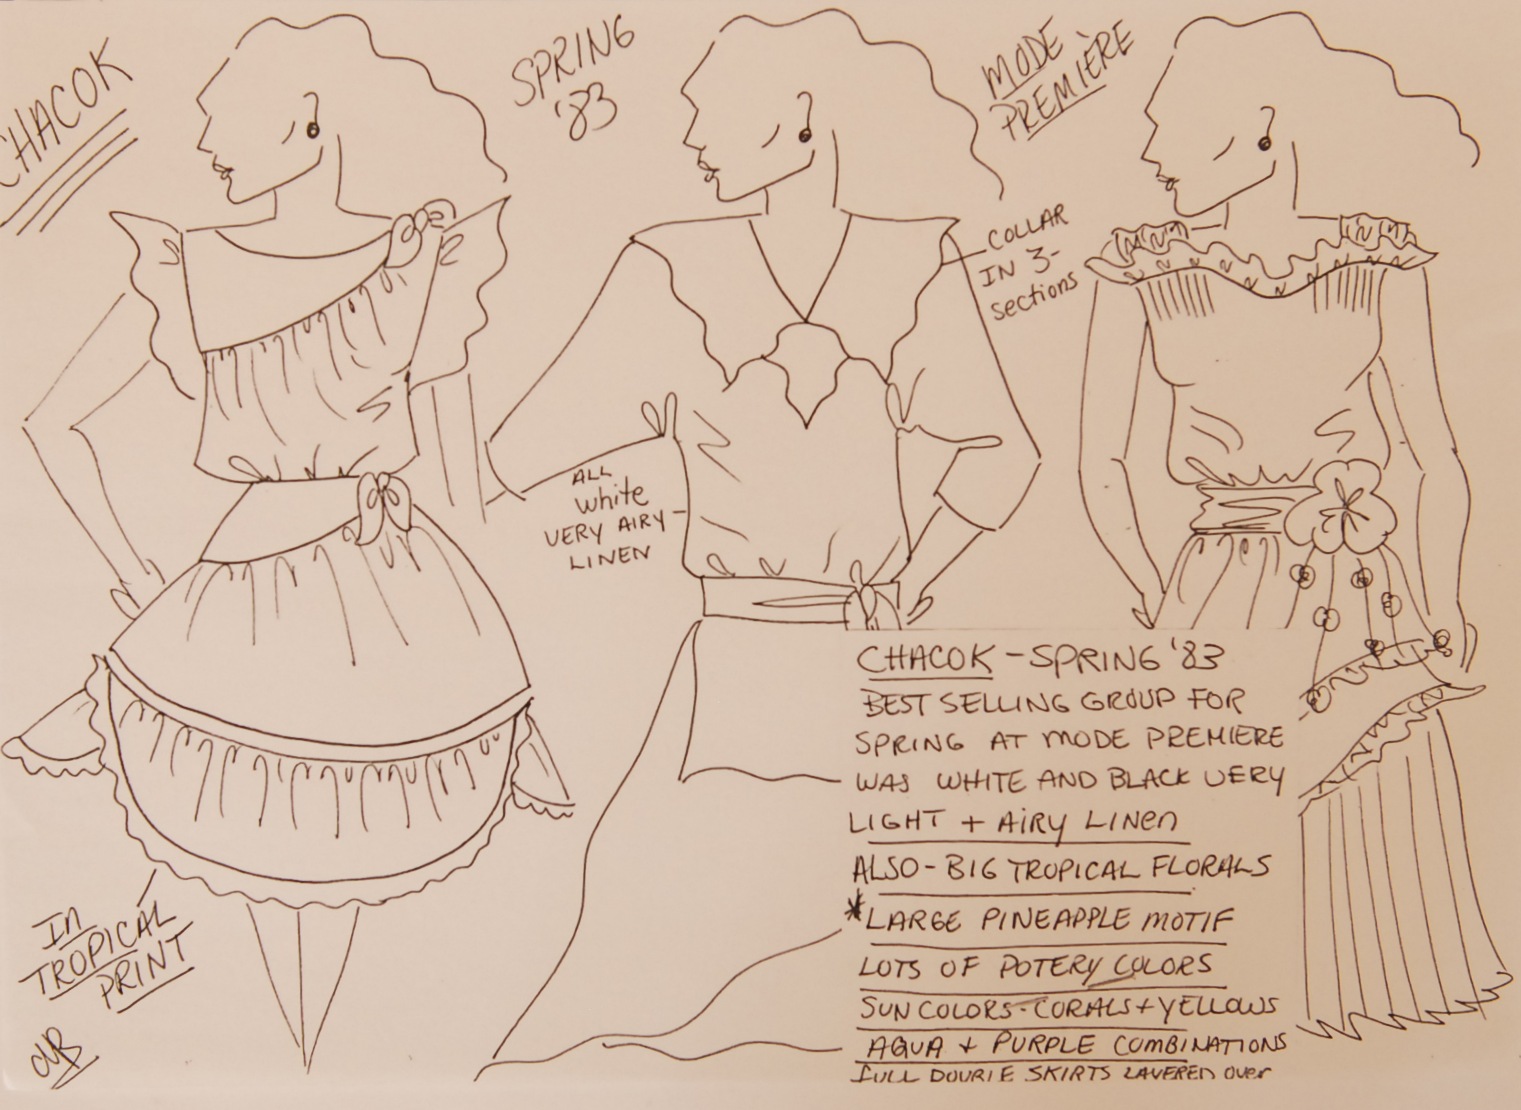 CHACOK
SPRING
'83
MODE
PREMIÈRE
COLLAR
IN 3-
sections
ALL
white
VERY AIRY -
LINEN
CHACOK - SPRING '83
BEST SELLING GROUP FOR
SPRING AT MODE PREMIERE
WAS WHITE AND BLACK VERY
LIGHT + AIRY LINEN
ALSO - BIG TROPICAL FLORALS
*LARGE PINEAPPLE MOTIF
LOTS OF POTERY COLORS
SUN COLORS - CORALS + YELLOWS
AQUA + PURPLE COMBINATIONS
FULL DOUBLE SKIRTS LAYERED over
In
TROPICAL
PRINT